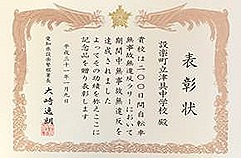 表彰状
設楽町立津具中学校 殿
貴校は二〇〇日間自転車
無事故無違反ラリーにおいて
期間中無事故無違反を
達成されました
よってその功績を称えここに
記念品を贈り表彰します
平成三十一年一月九日
愛知県設楽警察署長
大崎逸朗